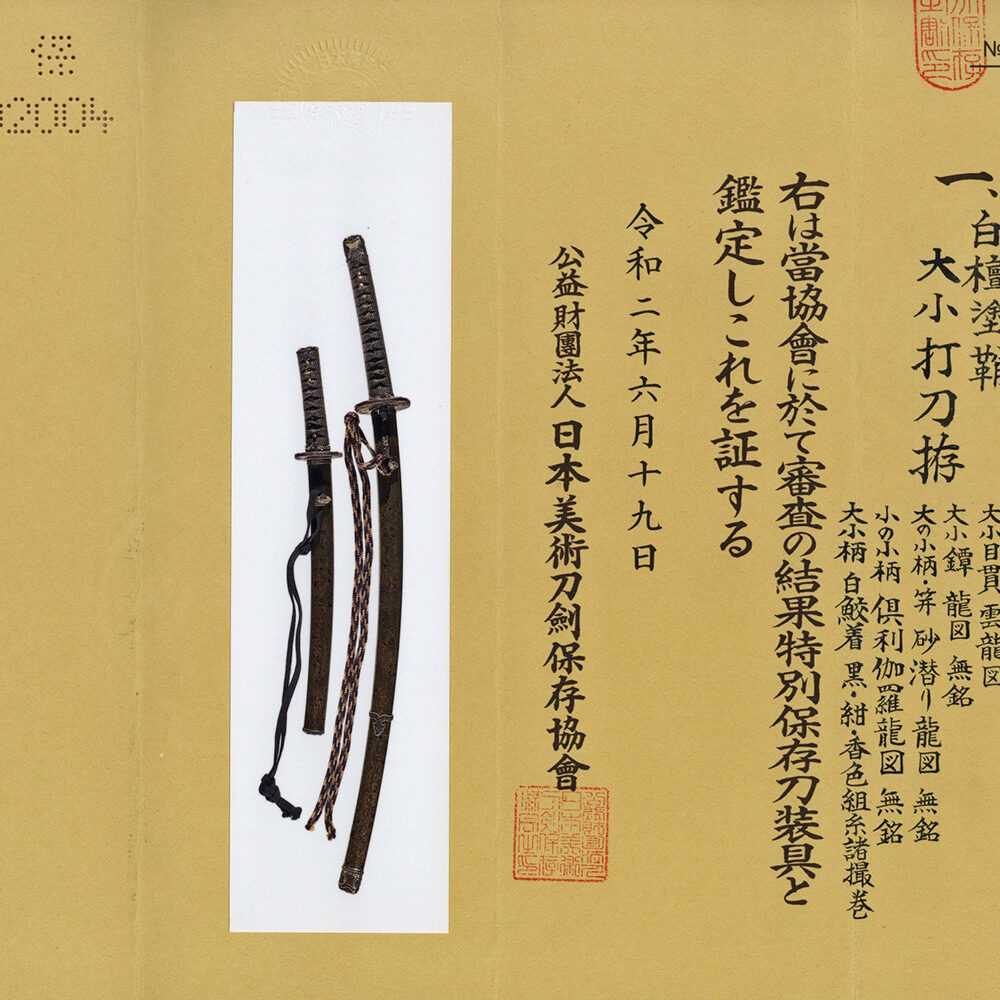 №
一、白檀塗鞘
大小打刀拵
大小目貫 雲龍図
大小鐔 龍図 無銘
大の小柄・笄 砂潜り龍図 無銘
小の小柄 倶利伽羅龍図 無銘
大小柄 白鮫着 黒・紺・香色組糸諸撮巻
右は當協會に於て審査の結果特別保存刀装具と
鑑定しこれを証する
令和二年六月十九日
公益財團法人 日本美術刀劍保存協會
保
2004